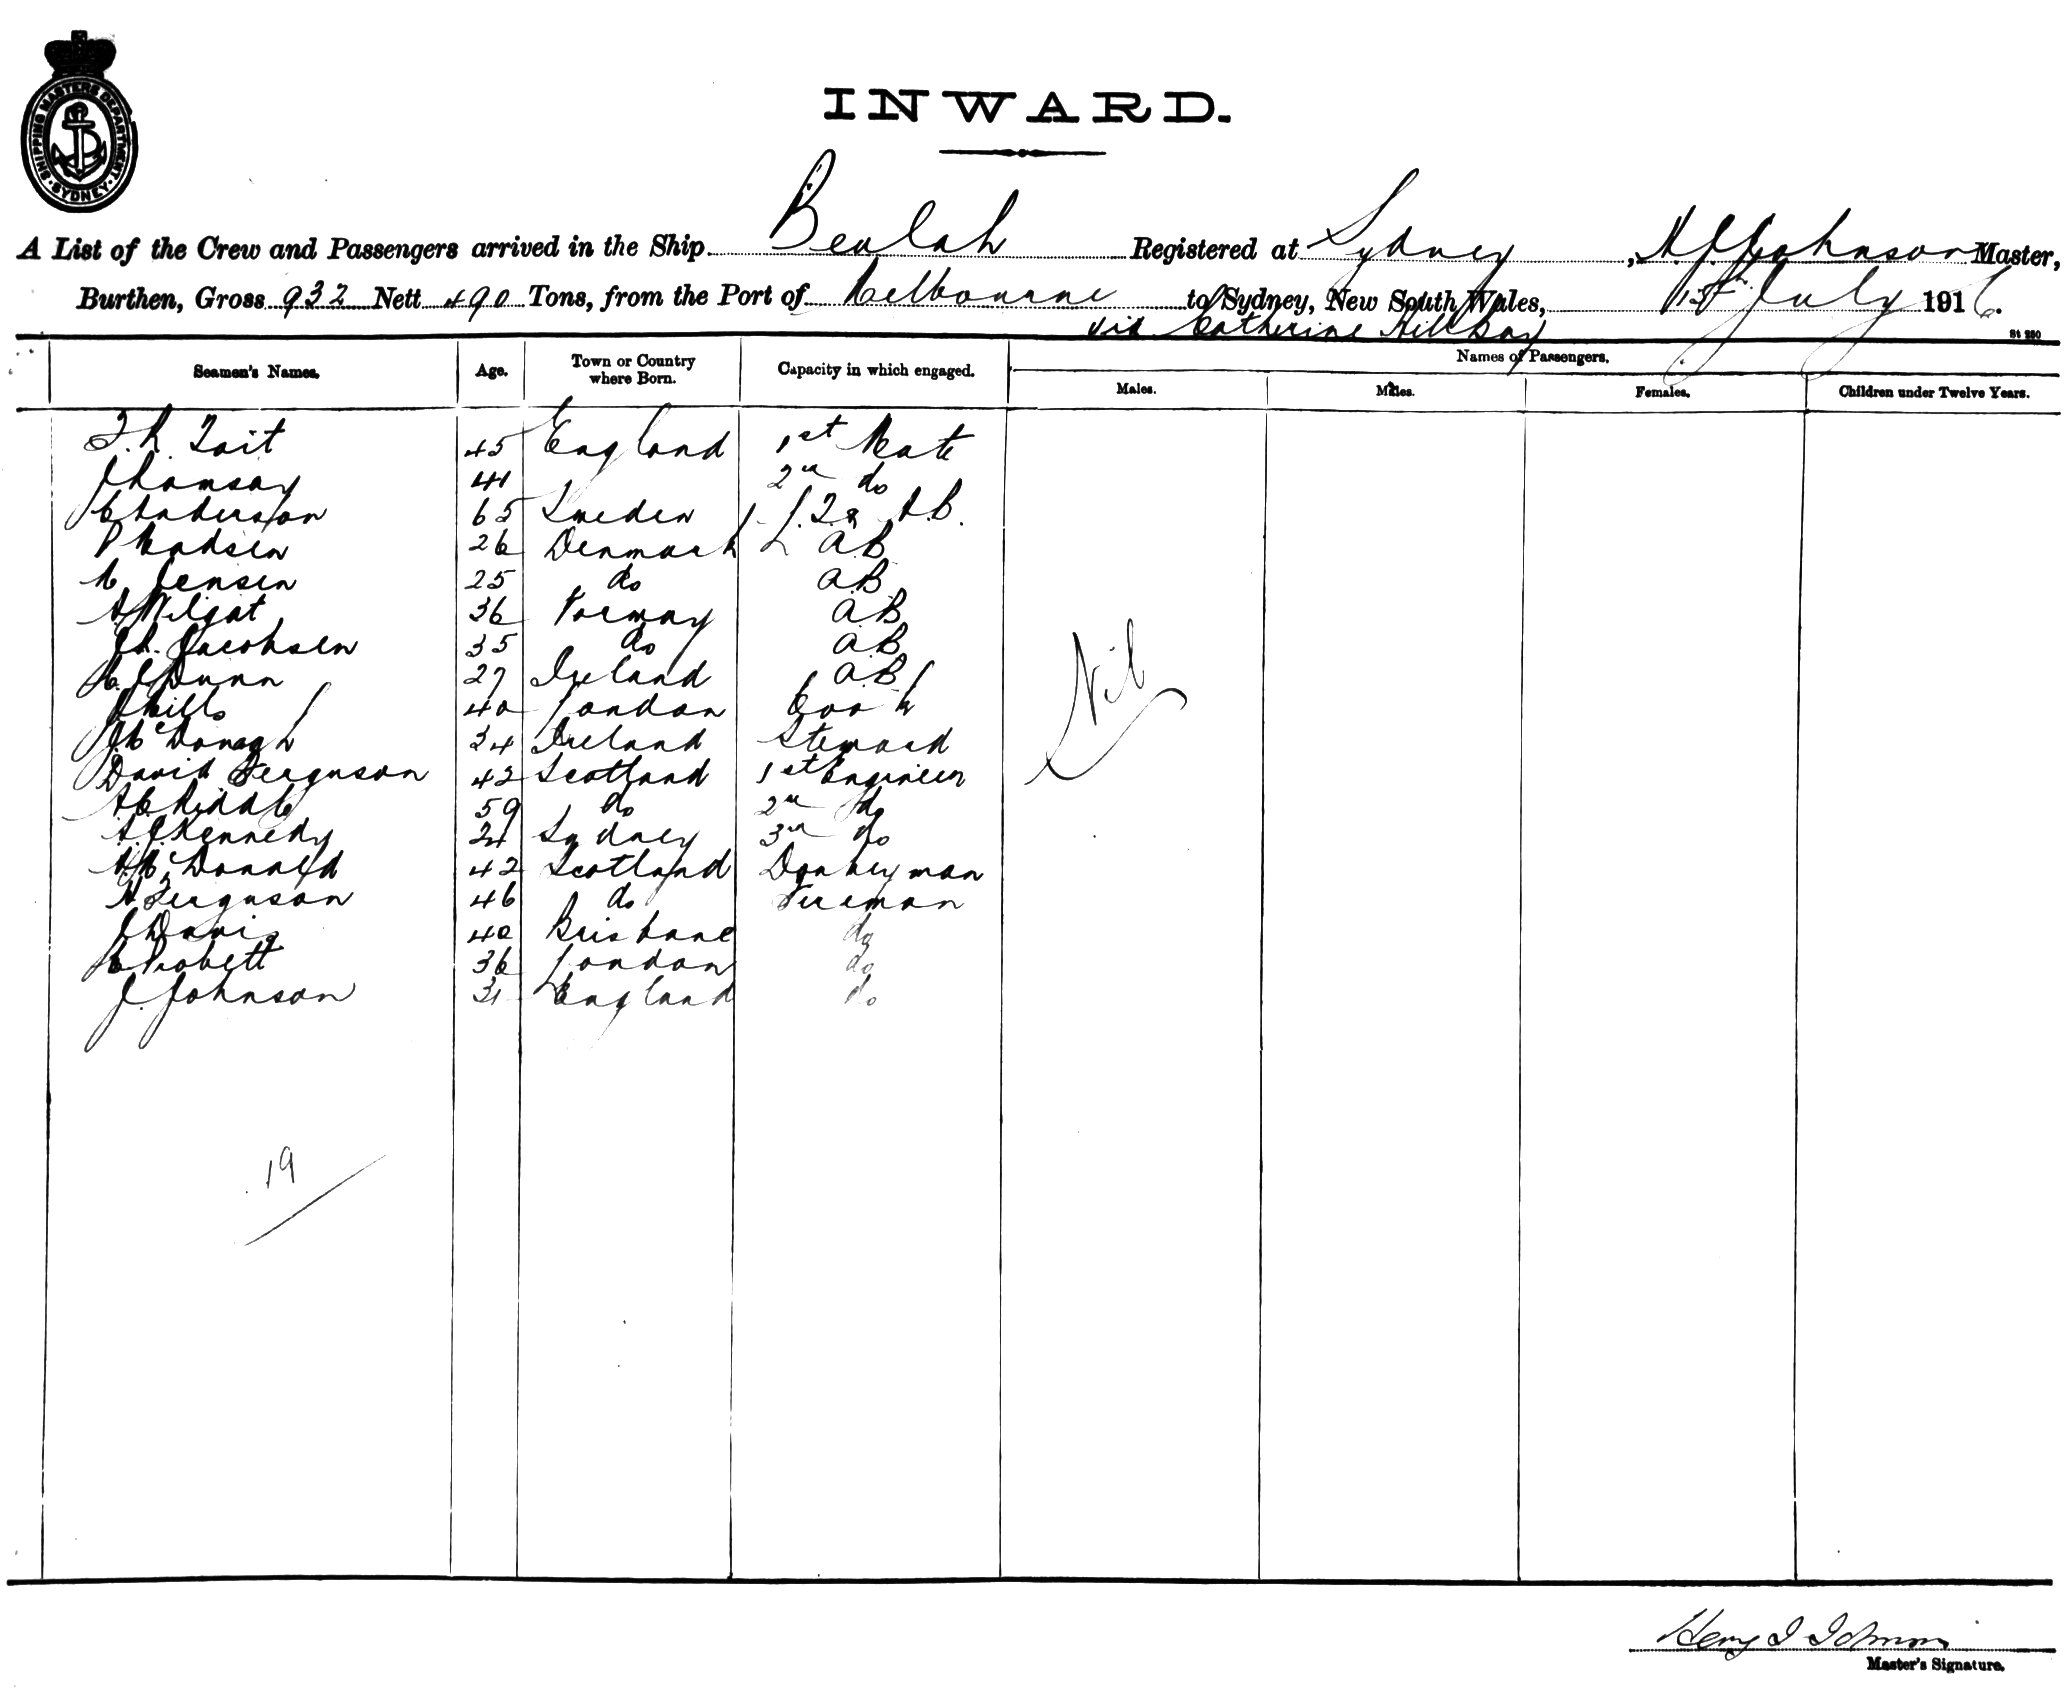 SHIPPING MASTERS DEPARTMENT
SYDNEY
INWARD.
A List of the Crew and Passengers arrived in the Ship Beulah Registered at Sydney, H. J. Johnson Master,
Burthen, Gross 932 Nett 490 Tons, from the Port of Melbourne to Sydney, New South Wales, 15th July 1916.
via Catherine Hill Bay
St 250
Seamen's Names. Age. Town or Country where Born. Capacity in which engaged. Names of Passengers.
Males. Males. Females. Children under Twelve Years.
T. R. Tait 45 England 1st Mate
J Ramsay 41 2nd do
C Anderson 65 Sweden A.B.
P Madsen 26 Denmark AB
Jensen 25 do AB
36 Norway AB
Jacobsen 35 do AB
Dunn 27 Ireland AB
Mills 40 London Cook
J McDonagh 34 Ireland Steward
David Ferguson 42 Scotland 1st Engineer
Riddle 59 do 2nd do
A. J. Kennedy 24 Sydney 3rd do
McDonald 42 Scotland Donkeyman
H Ferguson 46 do Fireman
J Davis 40 Brisbane do
Probett 36 London do
J. Johnson 31 England do
Nil
19
Henry J Johnson
Master's Signature.